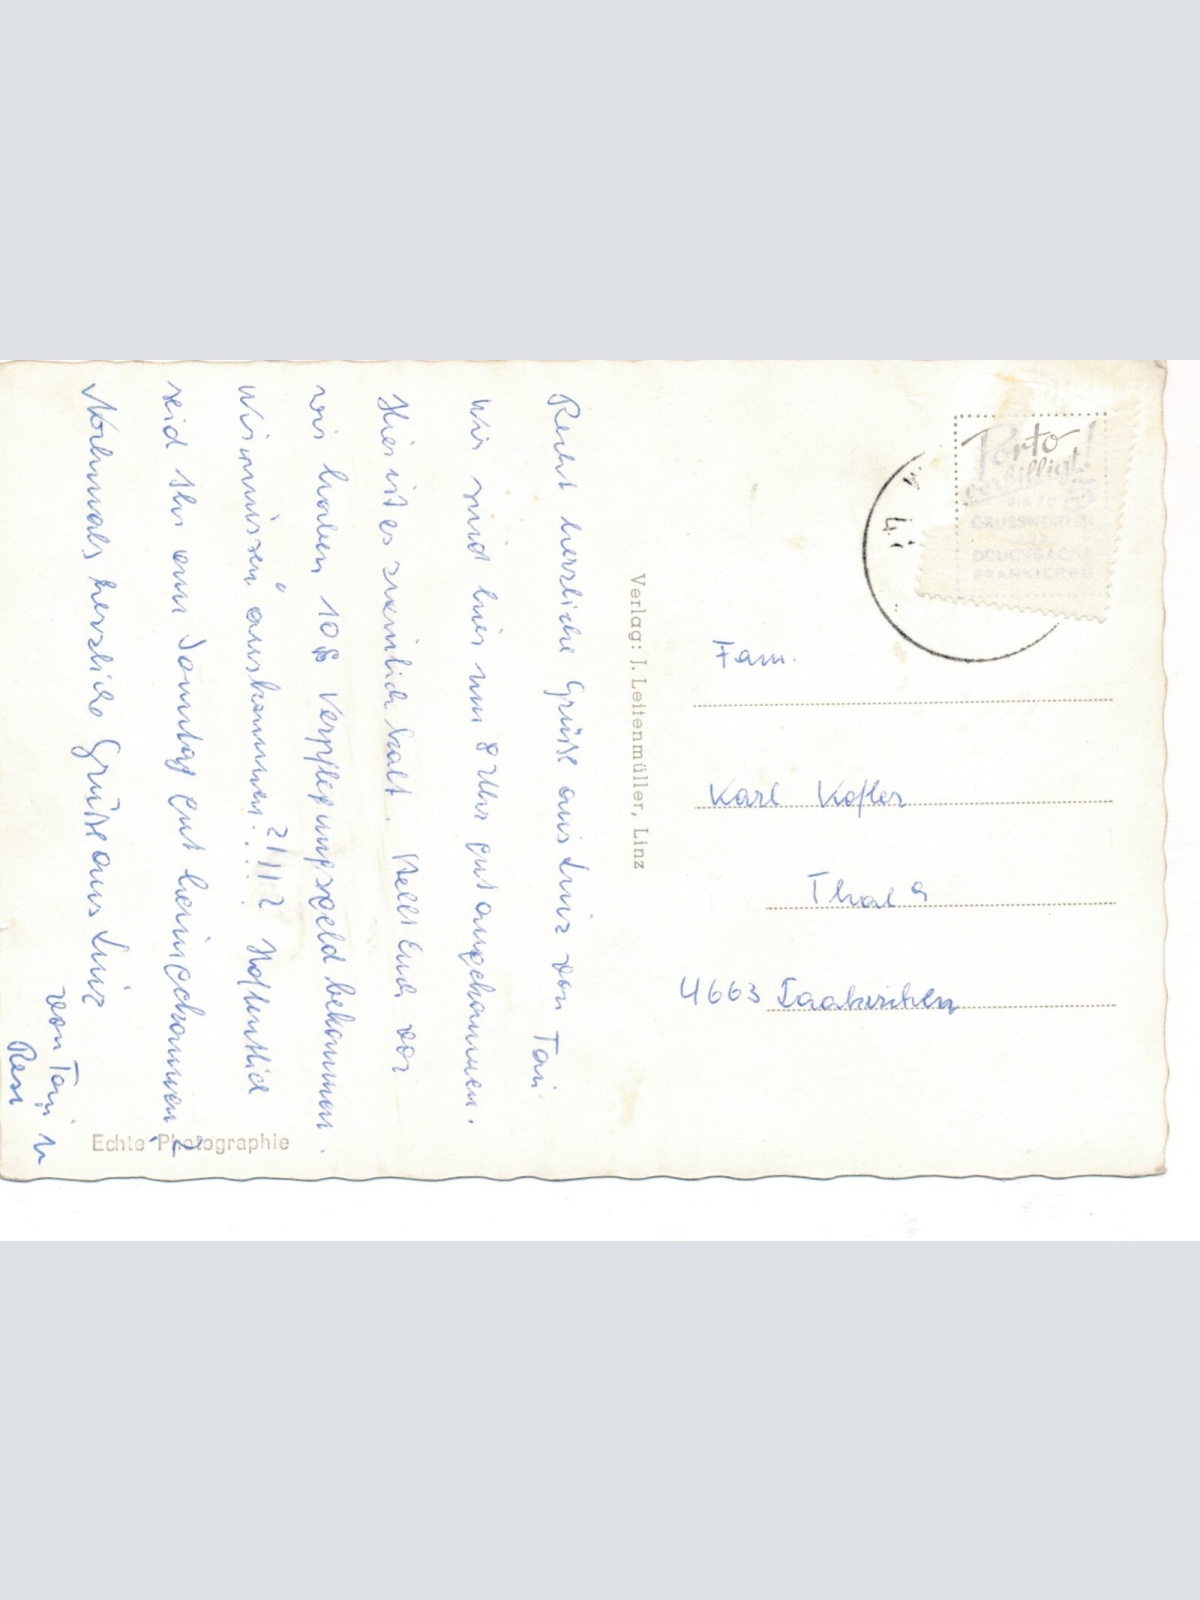 Recht herzliche Grüße aus Linz von Toni.
Wir sind hier um 8 Uhr gut angekommen.
Hier ist es ziemlich kalt. Stellt Euch vor
wir haben 10 S Verpflegungsgeld bekommen.
Wir müssen auskommen. Hoffentlich
seid Ihr am Sonntag gut heimgekommen?
Nochmals herzliche Grüße aus Linz
von Toni u
Resi
Echte Photographie
Verlag: J. Leitenmüller, Linz
Porto
verbilligt!
BIS ZU 5
GRUSSWORTEN
ALS
DRUCKSACHE
FRANKIEREN
Fam.
Karl Kofler
Thal 9
4663 Laakirchen